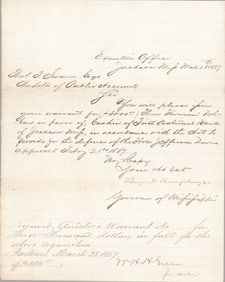 Executive Office
Jackson Miss March 25th 1867
Auditor of Public Accounts
Sir
You will please issue
your warrant for $3000 (Three Thousand Dol-
lars) in favor of Cashier of First National Bank
of Jackson Miss, in accordance with the Act to
provide for the defence of the Hon Jefferson Davis
approved Feby 21st 1867
Very Respy
Your obt svt
Benj. G. Humphreys
Governor of Mississippi
Received, Auditor's Warrant No for
Three Thousand dollars in full for the
above requisition
Jackson March 25. 1867
$3000
W. H. H. Green